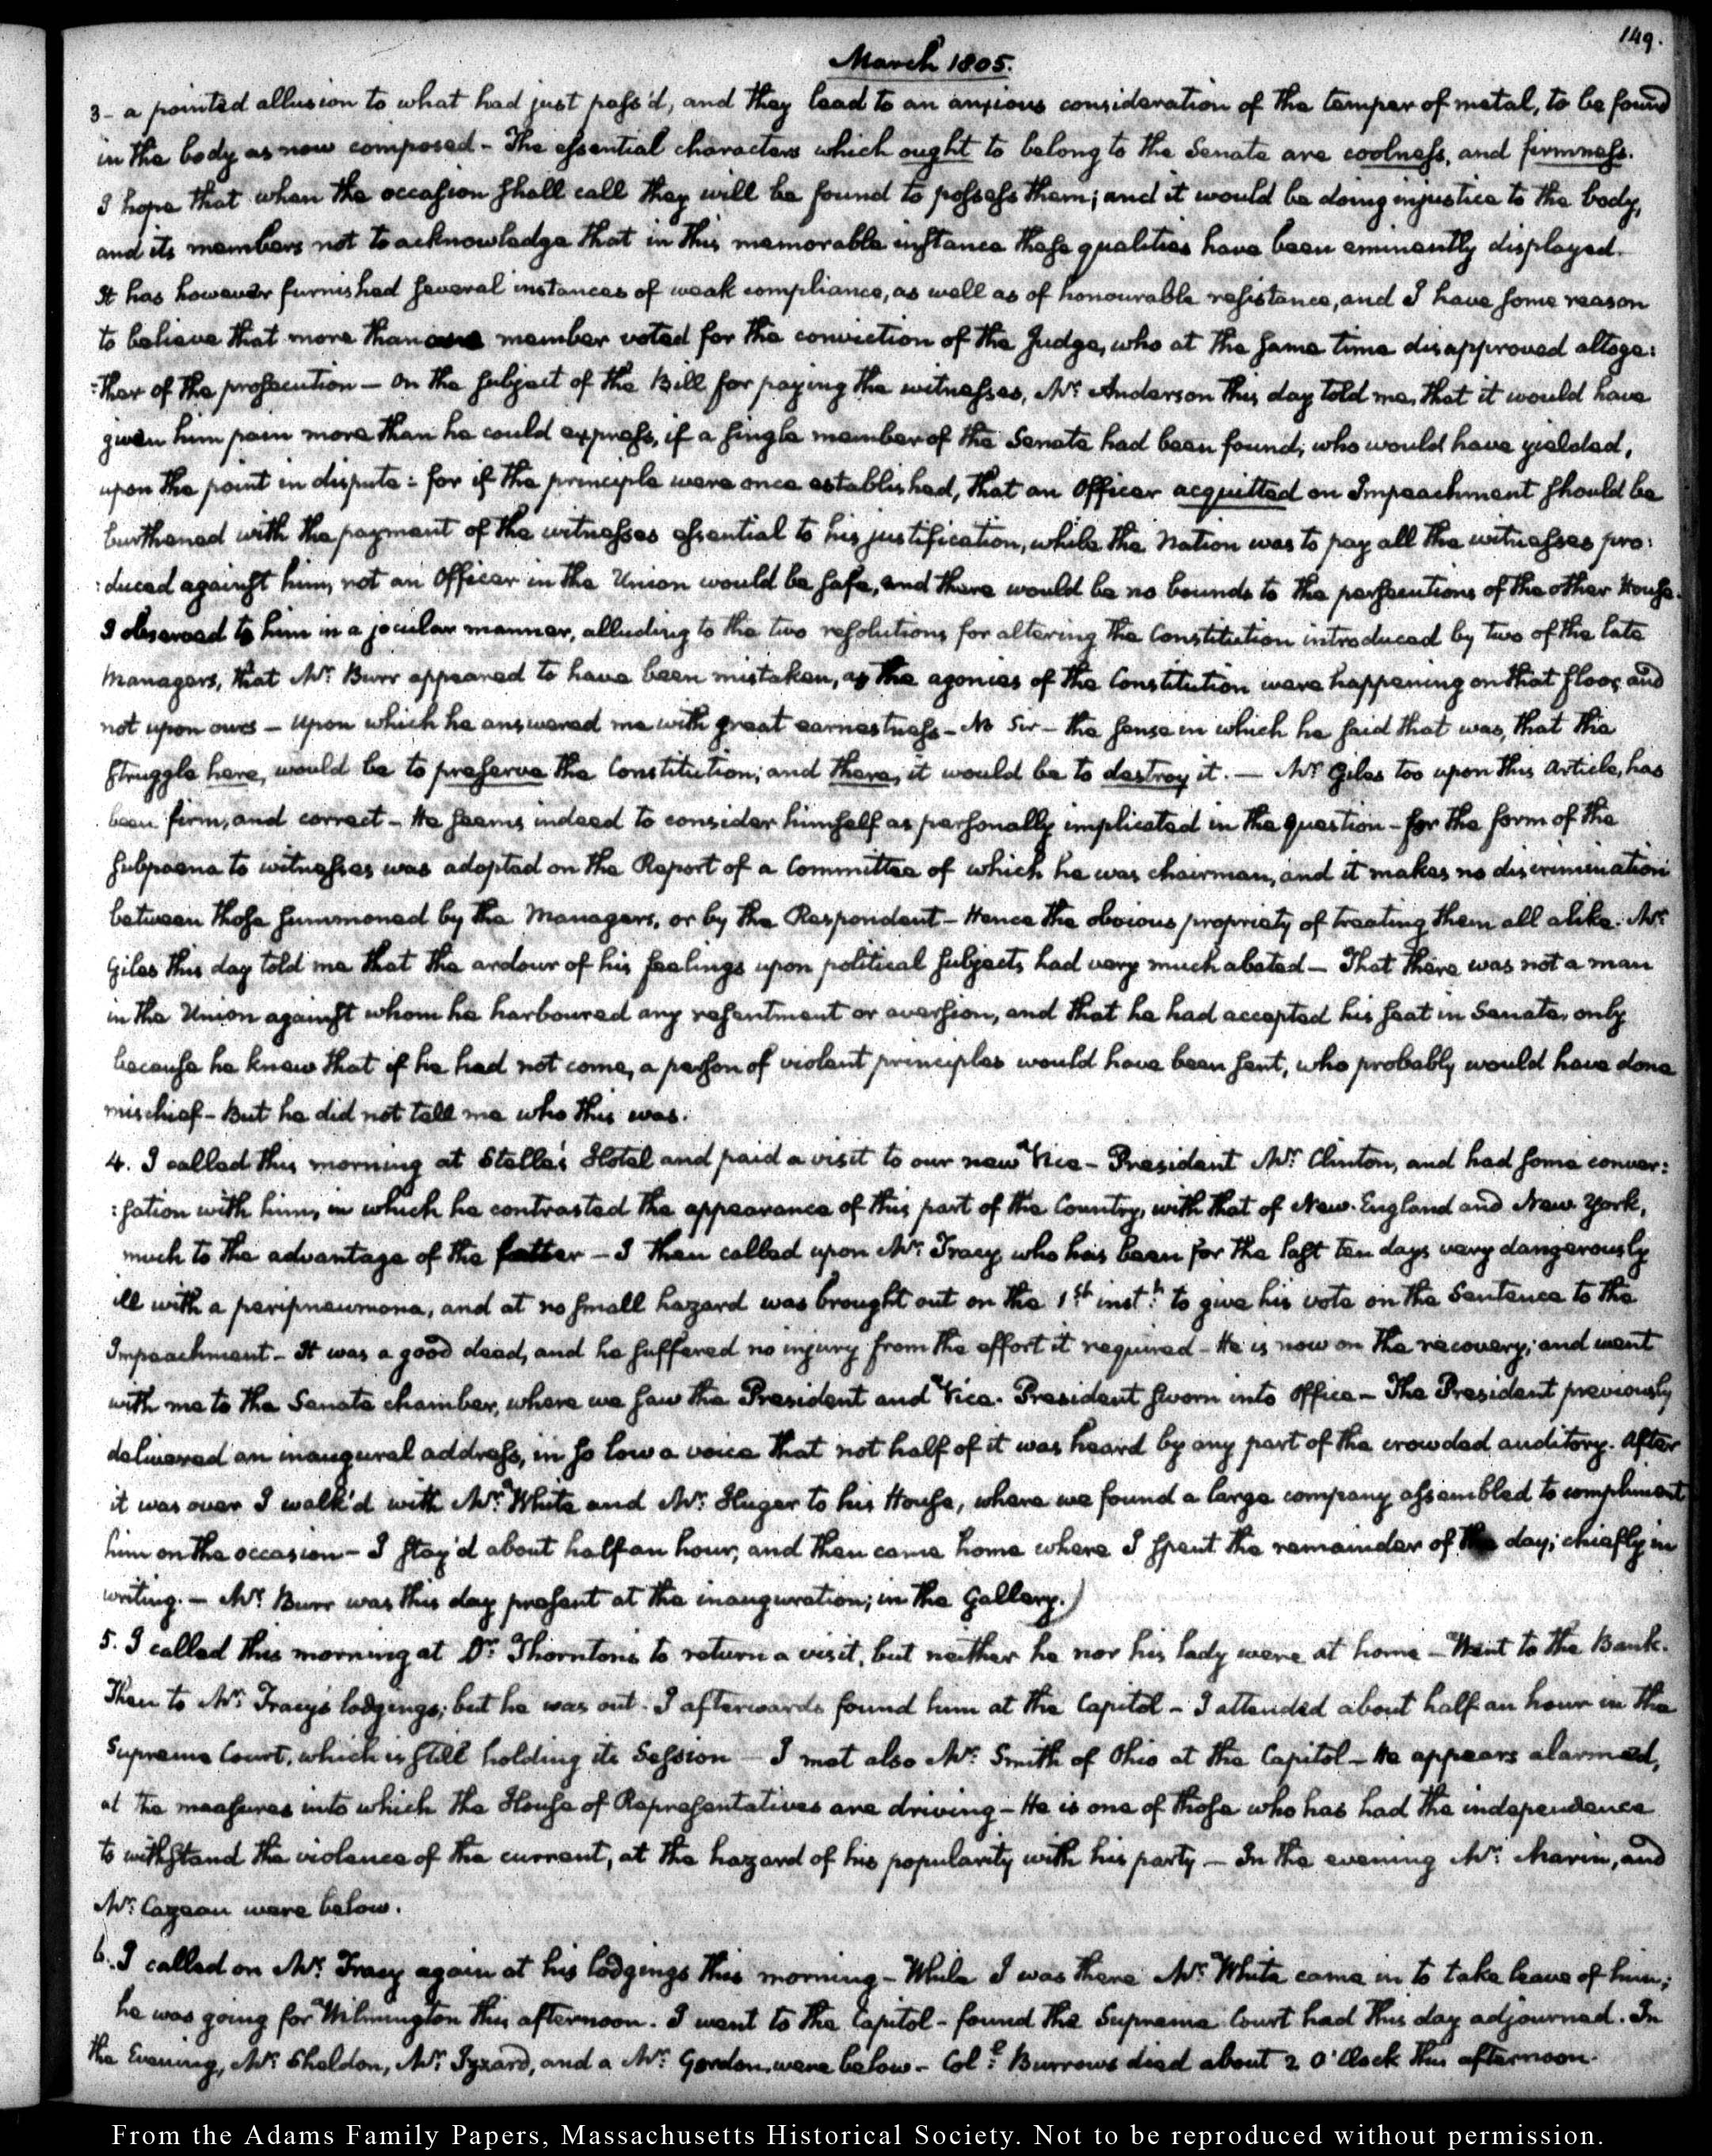 149.
March 1805.
3- a pointed allusion to what had just pass'd, and they lead to an anxious consideration of the temper of metal, to be found
in the body as now composed - The essential characters which ought to belong to the Senate are coolness, and firmness.
I hope that when the occasion shall call they will be found to possess them; and it would be doing injustice to the body,
and its members not to acknowledge that in this memorable instance these qualities have been eminently displayed.
It has however furnished several instances of weak compliance, as well as of honourable resistance, and I have some reason
to believe that more than one member voted for the conviction of the Judge, who at the same time disapproved altoge:
:ther of the prosecution - On the subject of the Bill for paying the witnesses, Mr. Anderson this day told me, that it would have
given him pain more than he could express, if a single member of the Senate had been found, who would have yielded,
upon the point in dispute: for if the principle were once established, that an Officer acquitted on Impeachment should be
burthened with the payment of the witnesses essential to his justification, while the Nation was to pay all the witnesses pro:
:duced against him, not an Officer in the Union would be safe, and there would be no bounds to the persecutions of the other House.
I observed to him in a jocular manner, alluding to the two resolutions for altering the Constitution introduced by two of the late
Managers, that Mr. Burr appeared to have been mistaken, as the agonies of the Constitution were happening on that floor, and
not upon ours - Upon which he answered me with great earnestness - No Sir - the sense in which he said that was, that the
struggle here, would be to preserve the Constitution; and there, it would be to destroy it. - Mr. Giles too upon this Article, has
been firm, and correct - He seems indeed to consider himself as personally implicated in the question - for the form of the
subpoena to witnesses was adopted on the Report of a Committee of which he was chairman, and it makes no discrimination
between those summoned by the Managers, or by the Respondent - Hence the obvious propriety of treating them all alike. Mr.
Giles this day told me that the ardour of his feelings upon political subjects had very much abated - That there was not a man
in the Union against whom he harboured any resentment or aversion, and that he had accepted his seat in Senate, only
because he knew that if he had not come, a person of violent principles would have been sent, who probably would have done
mischief - But he did not tell me who this was.
4. I called this morning at Stelle's Hotel and paid a visit to our new Vice-President Mr. Clinton, and had some conver:
:sation with him, in which he contrasted the appearance of this part of the Country, with that of New-England and New York,
much to the advantage of the latter - I then called upon Mr. Tracy who has been for the last ten days very dangerously
ill with a peripneumona, and at no small hazard was brought out on the 1st. inst. to give his vote on the Sentence to the
Impeachment - It was a good deed, and he suffered no injury from the effort it required - He is now on the recovery; and went
with me to the Senate chamber, where we saw the President and Vice-President sworn into Office - The President previously
delivered an inaugural address, in so low a voice that not half of it was heard by any part of the crowded auditory. After
it was over I walk'd with Mr. White and Mr. Huger to his House, where we found a large company assembled to compliment
him on the occasion - I stay'd about half an hour, and then came home where I spent the remainder of the day; chiefly in
writing. - Mr. Burr was this day present at the inauguration; in the Gallery.)
5. I called this morning at Dr. Thornton's to return a visit, but neither he nor his lady were at home - Went to the Bank.
Then to Mr. Tracy's lodgings; but he was out. I afterwards found him at the Capitol - I attended about half an hour in the
Supreme Court, which is still holding its Session - I met also Mr. Smith of Ohio at the Capitol - He appears alarmed,
at the measures into which the House of Representatives are driving - He is one of those who has had the independence
to withstand the violence of the current, at the hazard of his popularity with his party - In the evening Mr. Marin, and
Mr. Cazeau were below.
6. I called on Mr. Tracy again at his lodgings this morning - While I was there Mr. White came in to take leave of him;
he was going for Wilmington this afternoon. I went to the Capitol - found the Supreme Court had this day adjourned. In
the Evening, Mr. Sheldon, Mr. Izard, and a Mr. Gordon, were below - Coll. Burrows died about 2 O'Clock this afternoon.
From the Adams Family Papers, Massachusetts Historical Society. Not to be reproduced without permission.